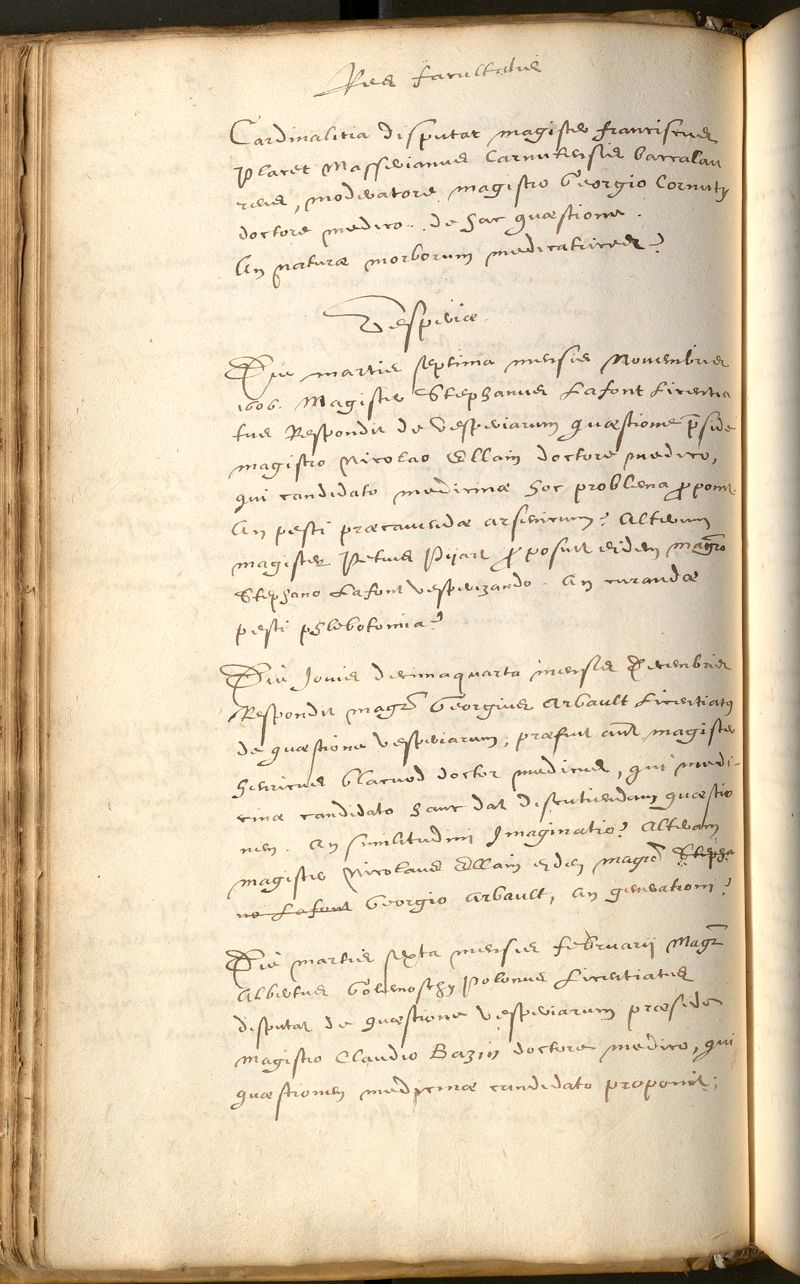 Res facultatis
Cardinalitia disputat magister franciscus
Placet Massevianus Carnutensis baccalau
reus, moderatore magistro Georgio Cornuty
doctore medico. de hac quæstione.
An naturæ morborum medicatrices?
Vesperiæ.
Die martis septima mensis Novembris
1606. Magister Stephanus Lafont Licentia
tus Respondit de vesperiarum quæstione p̄side
magistro Nicolao Ellain doctore medico,
qui candidato medicinæ hoc problema proponit.
An pesti præcavendæ arsenicum? Alterum
magister Petrus Pijart proposuit eidem magro
Stephano Lafont vesperizando. An curandæ
pesti phlebotomia?
Die Jovis decimaquarta mensis Decembris
Respondit magr Georgius Arbault Licentiatus
de quæstione vesperiarum, præfuit aut magister
Henricus blacuod doctor medicus, qui medi-
cinæ candidato hanc dat discutiendam quæstio
nem. An similitudini Imaginatio? Alteram
magister Nicolaus Ellain eidem magro Stepha
no Lafont Georgio Arbault, An generationi?
Die martis sexta mensis februarij Magr
Albertus Polonus Licentiatus
disputat de quæstione vesperiarum præside
magistro Claudio Bazin doctore medico, qui
quæstionem medicinæ candidato proponit;